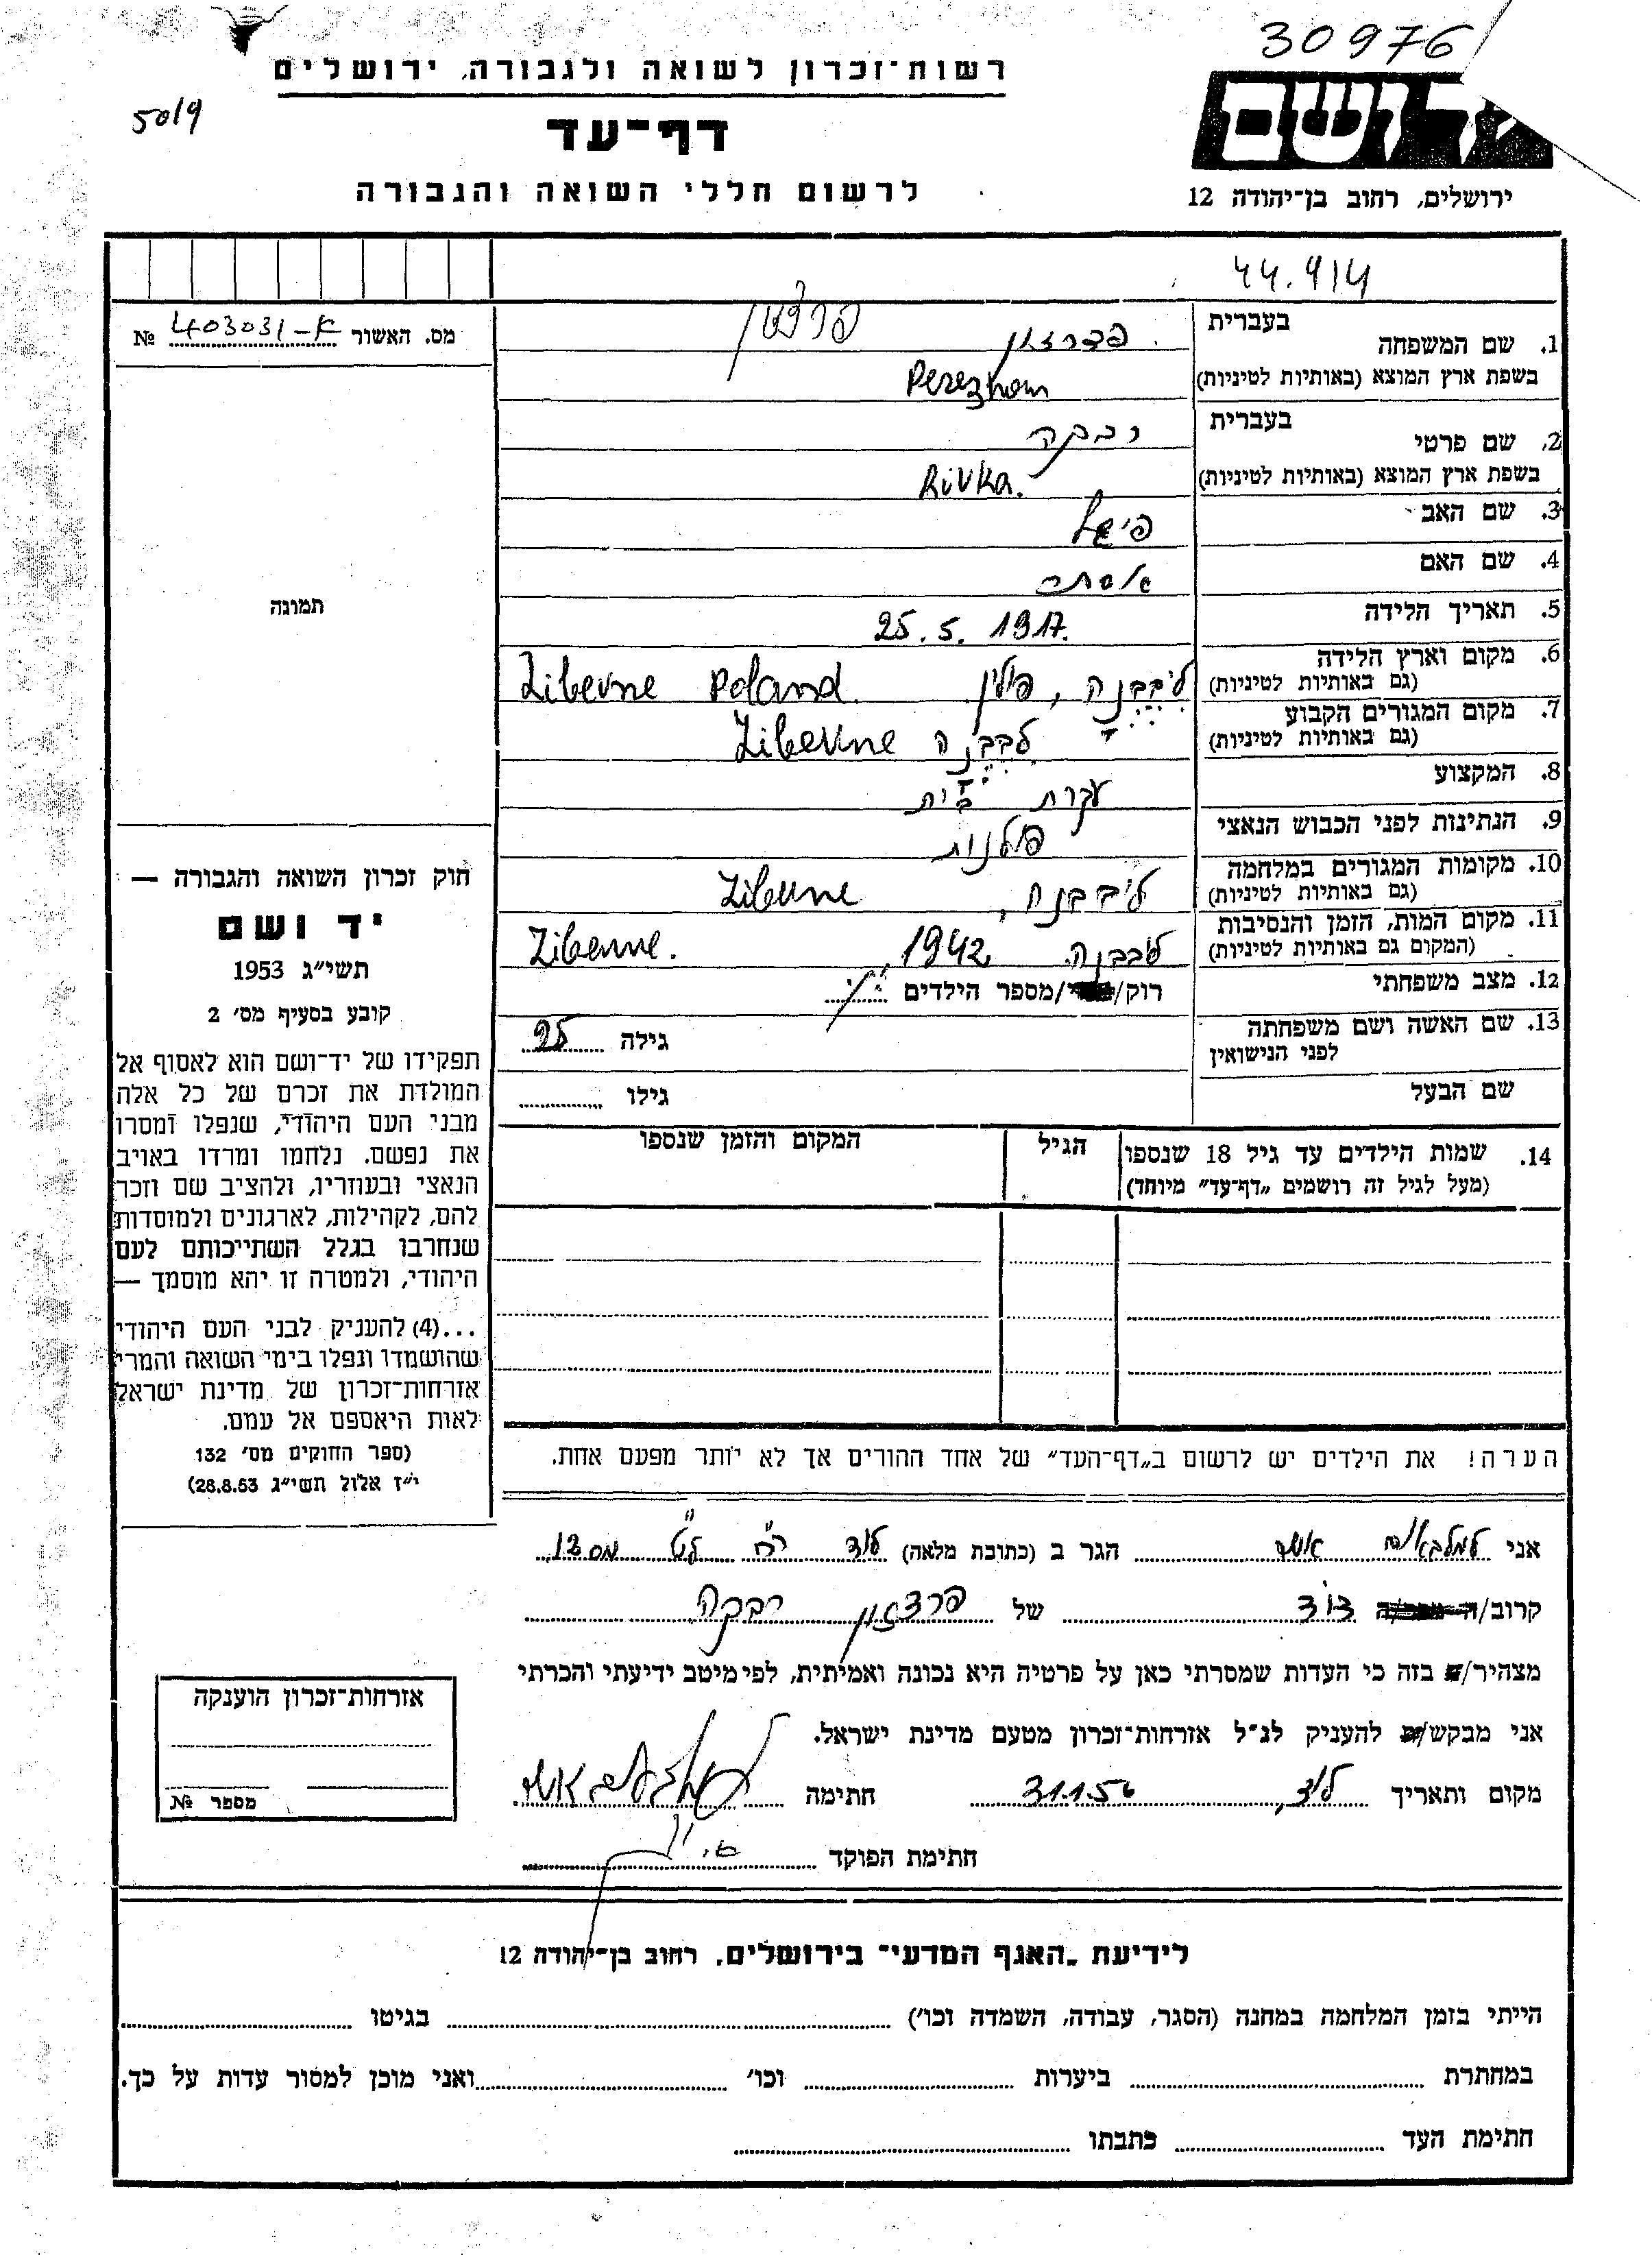 30976
רשות־זכרון לשואה ולגבורה, ירושלים
5019
דף־עד
ושם
לרשום חללי השואה והגבורה
ירושלים, רחוב בן־יהודה 12
44.914
מס. האשור 403031-א №
1. שם המשפחה
בעברית
בשפת ארץ המוצא (באותיות לטיניות)
2. שם פרטי
בעברית רבקה
בשפת ארץ המוצא (באותיות לטיניות) Rivka.
3. שם האב פישל
4. שם האם
5. תאריך הלידה 25.5.1917.
6. מקום וארץ הלידה
(גם באותיות לטיניות) ליבבנה, פולין Poland
7. מקום המגורים הקבוע
(גם באותיות לטיניות)
8. המקצוע עקרת בית
9. הנתינות לפני הכבוש הנאצי פולנית
10. מקומות המגורים במלחמה
(גם באותיות לטיניות) ליבבנה,
11. מקום המות, הזמן והנסיבות
(המקום גם באותיות לטיניות) 1942
12. מצב משפחתי רוק/ /מספר הילדים
13. שם האשה ושם משפחתה
לפני הנישואין גילה 25
שם הבעל גילו
14. שמות הילדים עד גיל 18 שנספו
(מעל לגיל זה רושמים „דף־עד” מיוחד)
הגיל
המקום והזמן שנספו
הערה! את הילדים יש לרשום ב„דף־העד” של אחד ההורים אך לא יותר מפעם אחת.
תמונה
חוק זכרון השואה והגבורה —
יד ושם
תשי״ג 1953
קובע בסעיף מס׳ 2
תפקידו של יד־ושם הוא לאסוף אל
המולדת את זכרם של כל אלה
מבני העם היהודי, שנפלו ומסרו
את נפשם, נלחמו ומרדו באויב
הנאצי ובעוזריו, ולהציב שם וזכר
להם, לקהילות, לארגונים ולמוסדות
שנחרבו בגלל השתייכותם לעם
היהודי, ולמטרה זו יהא מוסמך —
...(4) להעניק לבני העם היהודי
שהושמדו ונפלו בימי השואה והמרי
אזרחות־זכרון של מדינת ישראל
לאות היאספם אל עמם.
(ספר החוקים מס׳ 132
י״ז אלול תשי״ג 28.8.53)
אני אשר הגר ב (כתובת מלאה) לוד מס 12
קרוב/ה דוד של פרצזון רבקה
מצהיר/ה בזה כי העדות שמסרתי כאן על פרטיה היא נכונה ואמיתית, לפי מיטב ידיעתי והכרתי
אני מבקש/ת להעניק לנ״ל אזרחות־זכרון מטעם מדינת ישראל.
מקום ותאריך לוד, 31.1.56 חתימה
חתימת הפוקד
אזרחות־זכרון הוענקה
מספר №
לידיעת „האגף המדעי” בירושלים, רחוב בן־יהודה 12
הייתי בזמן המלחמה במחנה (הסגר, עבודה, השמדה וכו׳) בגיטו
במחתרת ביערות וכו׳ ואני מוכן למסור עדות על כך.
חתימת העד כתבתו